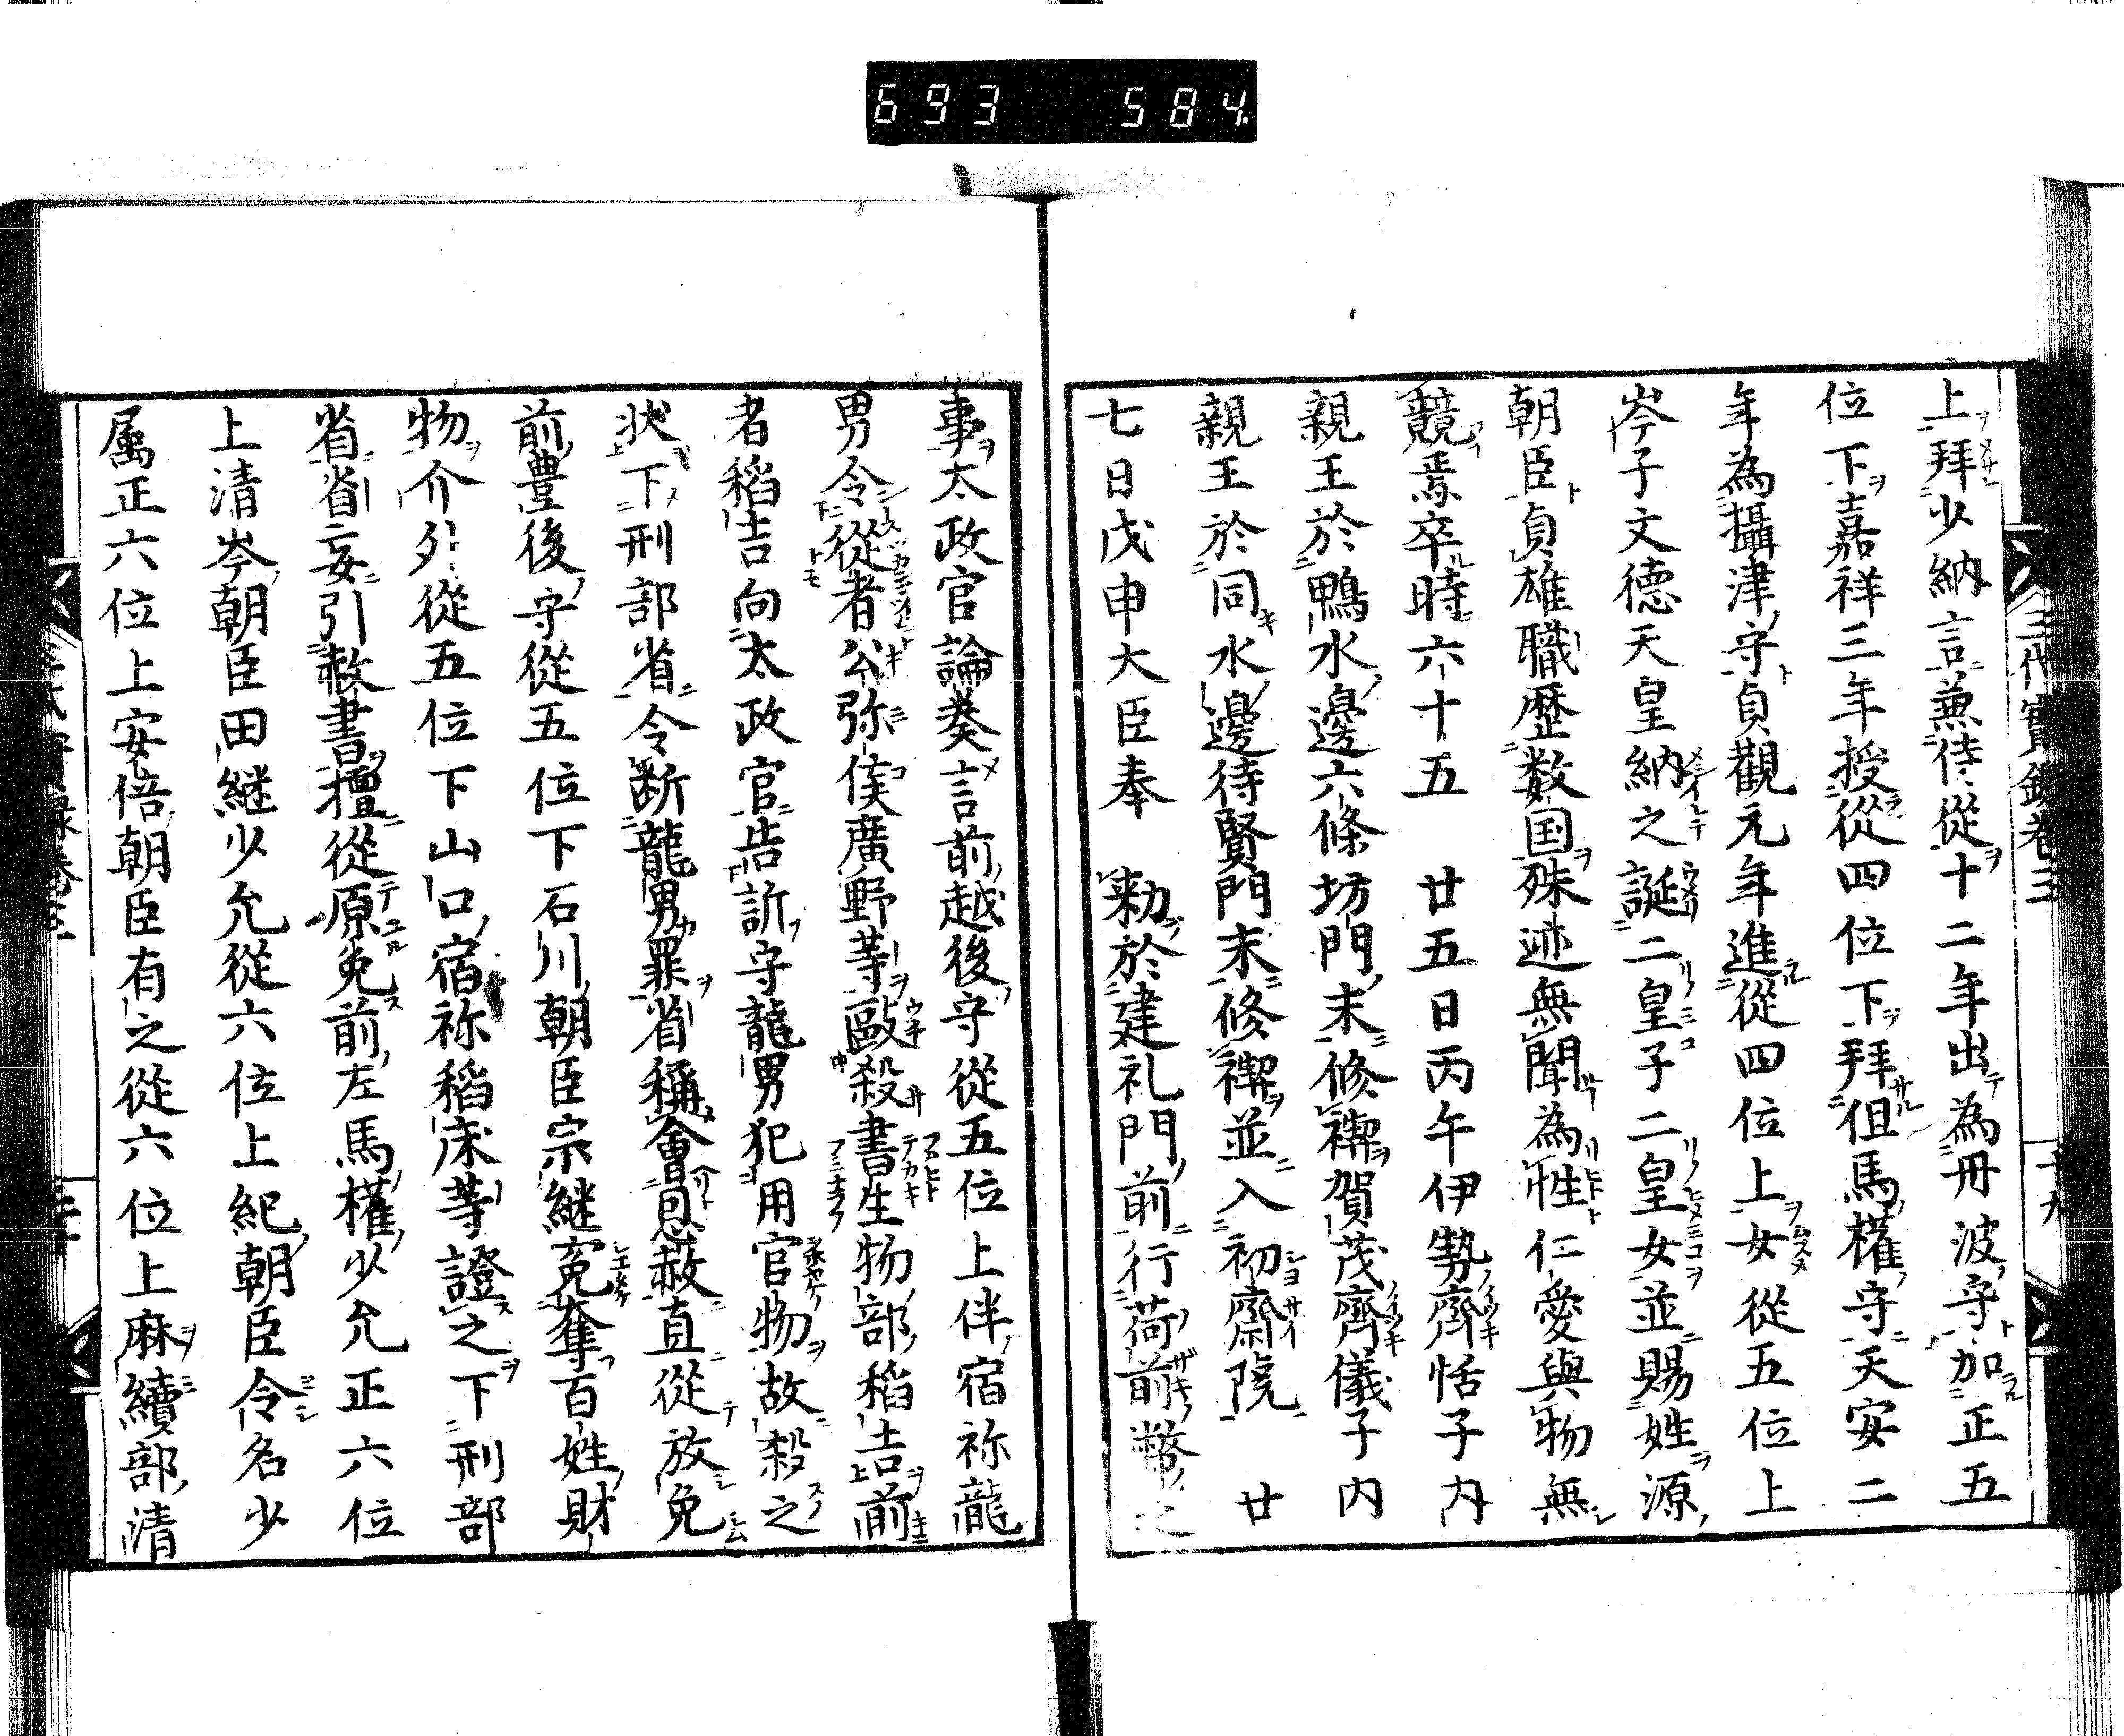 693 584
三代實録卷三 十九
上拜少納言兼侍從十二年出為丹波守加正五
位下嘉祥三年授從四位下拜但馬權守天安二
年為攝津守貞觀元年進從四位上女從五位上
岑子文德天皇納之誕二皇子二皇女並賜姓源
朝臣貞雄職歷数国殊迹無聞為性仁愛與物無
競焉卒時六十五 廿五日丙午伊勢齊恬子內
親王於鴨水邊六條坊門末修禊賀茂齊儀子内
親王於同水邊待賢門末修禊並入初齋院 廿
七日戊申大臣奉 勅於建礼門前行荷前幣之
事太政官論奏言前越後守從五位上伴宿祢龍
男令從者公弥侯廣野等毆殺書生物部稻吉前
者稻吉向太政官告訴守龍男犯用官物故殺之
状下刑部省令断龍男罪省稱會恩赦直從放免
前豊後守從五位下石川朝臣宗継寃奪百姓財
物介外從五位下山口宿祢稻床等證之下刑部
省省妄引赦書擅從原免前左馬權少允正六位
上清岑朝臣田継少允從六位上紀朝臣令名少
属正六位上安倍朝臣有之從六位上麻續部清